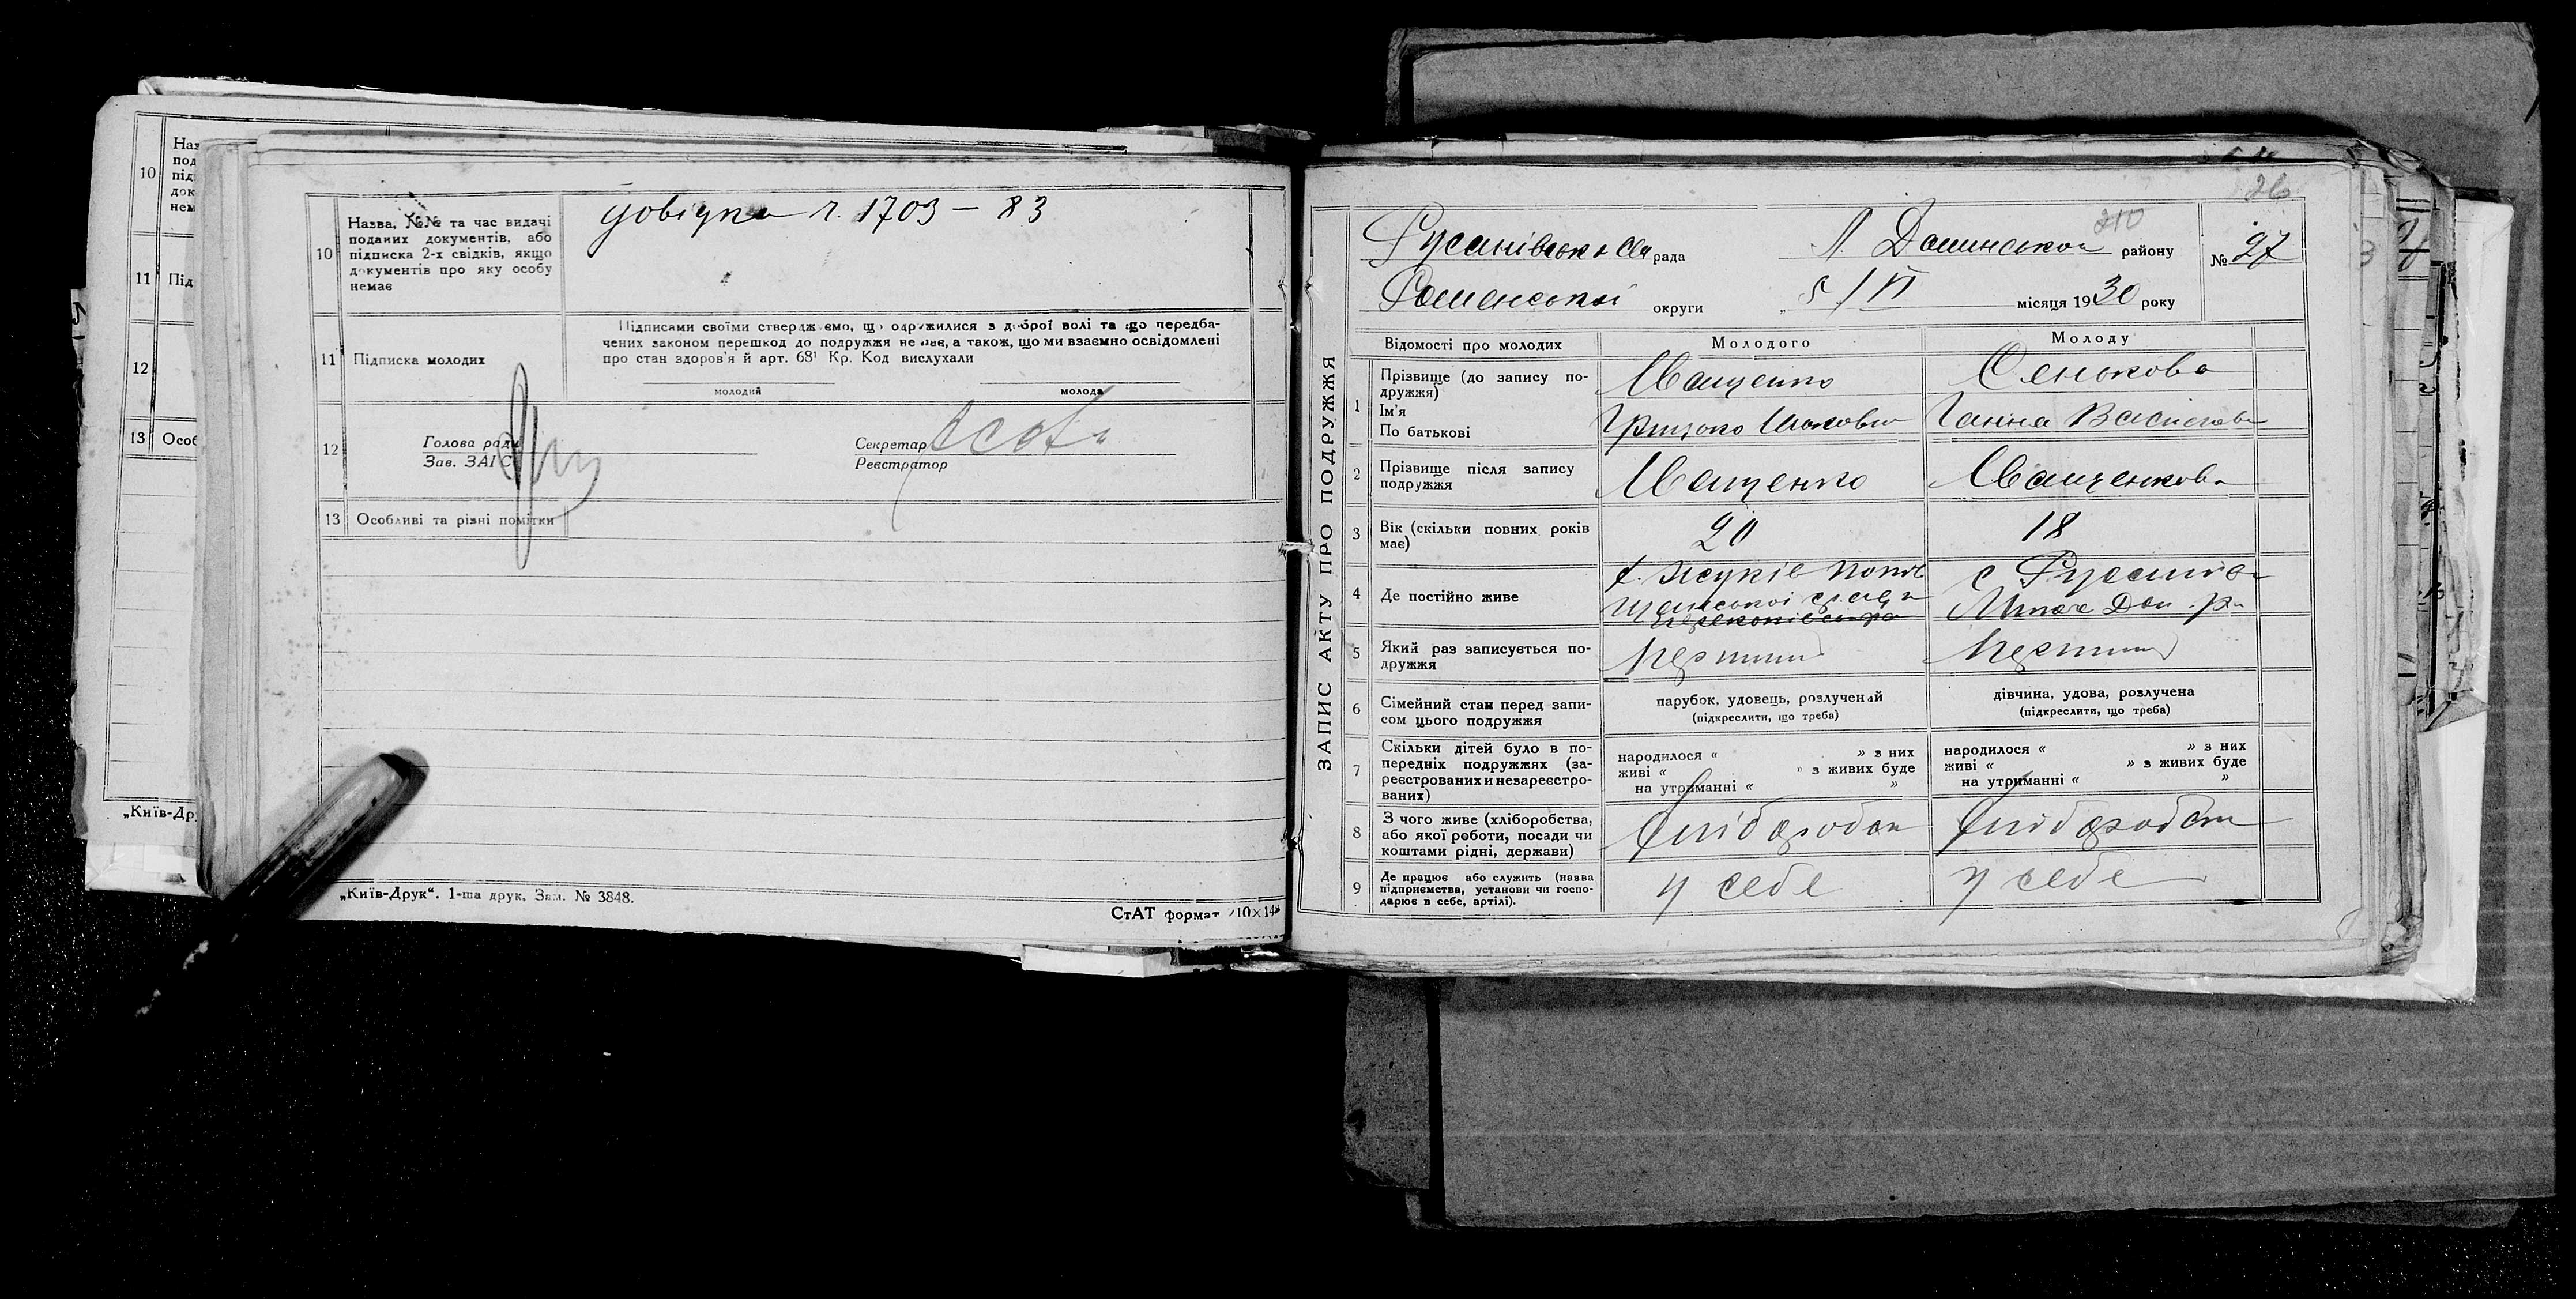 10
Наз
под
під
док
нем
11 Під
12
13 Особ
„Київ-Др
10
Назва, №№ та час видачі
поданих документів, або
підписка 2-х свідків, якщо
документів про яку особу
немає
довідка ч. 1703 — 83
11 Підписка молодих
Підписами своїми стверджуємо, що одружилися з доброї волі та що передба-
чених законом перешкод до подружжя не має, а також, що ми взаємно освідомлені
про стан здоров'я й арт. 68¹ Кр. Код вислухали
молодий молода
12
Голова ради
Зав. ЗАГС
Секретар
Реєстратор
13 Особливі та різні помітки
„Київ-Друк“. 1-ша друк. Зам. № 3848.
СтАТ формат 210×14
26
210
ЗАПИС АКТУ ПРО ПОДРУЖЖЯ
Русанівська с рада Л. Долинського району № 27
Роменської округи „ 5/VI місяця 1930 року
Відомості про молодих Молодого Молоду
1
Прізвище (до запису по-
дружжя) Іващенко Сенькова
Ім'я
По батькові
Грицько Ганна
2
Прізвище після запису
подружжя Іващенко Іващенкова
3
Вік (скільки повних років
має) 20 18
4 Де постійно живе
с. Русанівка
5
Який раз записується по-
дружжя Перший Перший
6
Сімейний стан перед запи-
сом цього подружжя
парубок, удовець, розлучений
(підкреслити, що треба)
дівчина, удова, розлучена
(підкреслити, що треба)
7
Скільки дітей було в по-
передніх подружжях (за-
реєстрованих и незареєстро-
ваних)
народилося “ » з них
живі “ » з живих буде
на утриманні “ »
народилося “ » з них
живі “ » з живих буде
на утриманні “ »
8
З чого живе (хліборобства,
або якої роботи, посади чи
коштами рідні, держави)
9
Де працює або служить (назва
підприємства, установи чи госпо-
дарює в себе, артілі).
у себе у себе